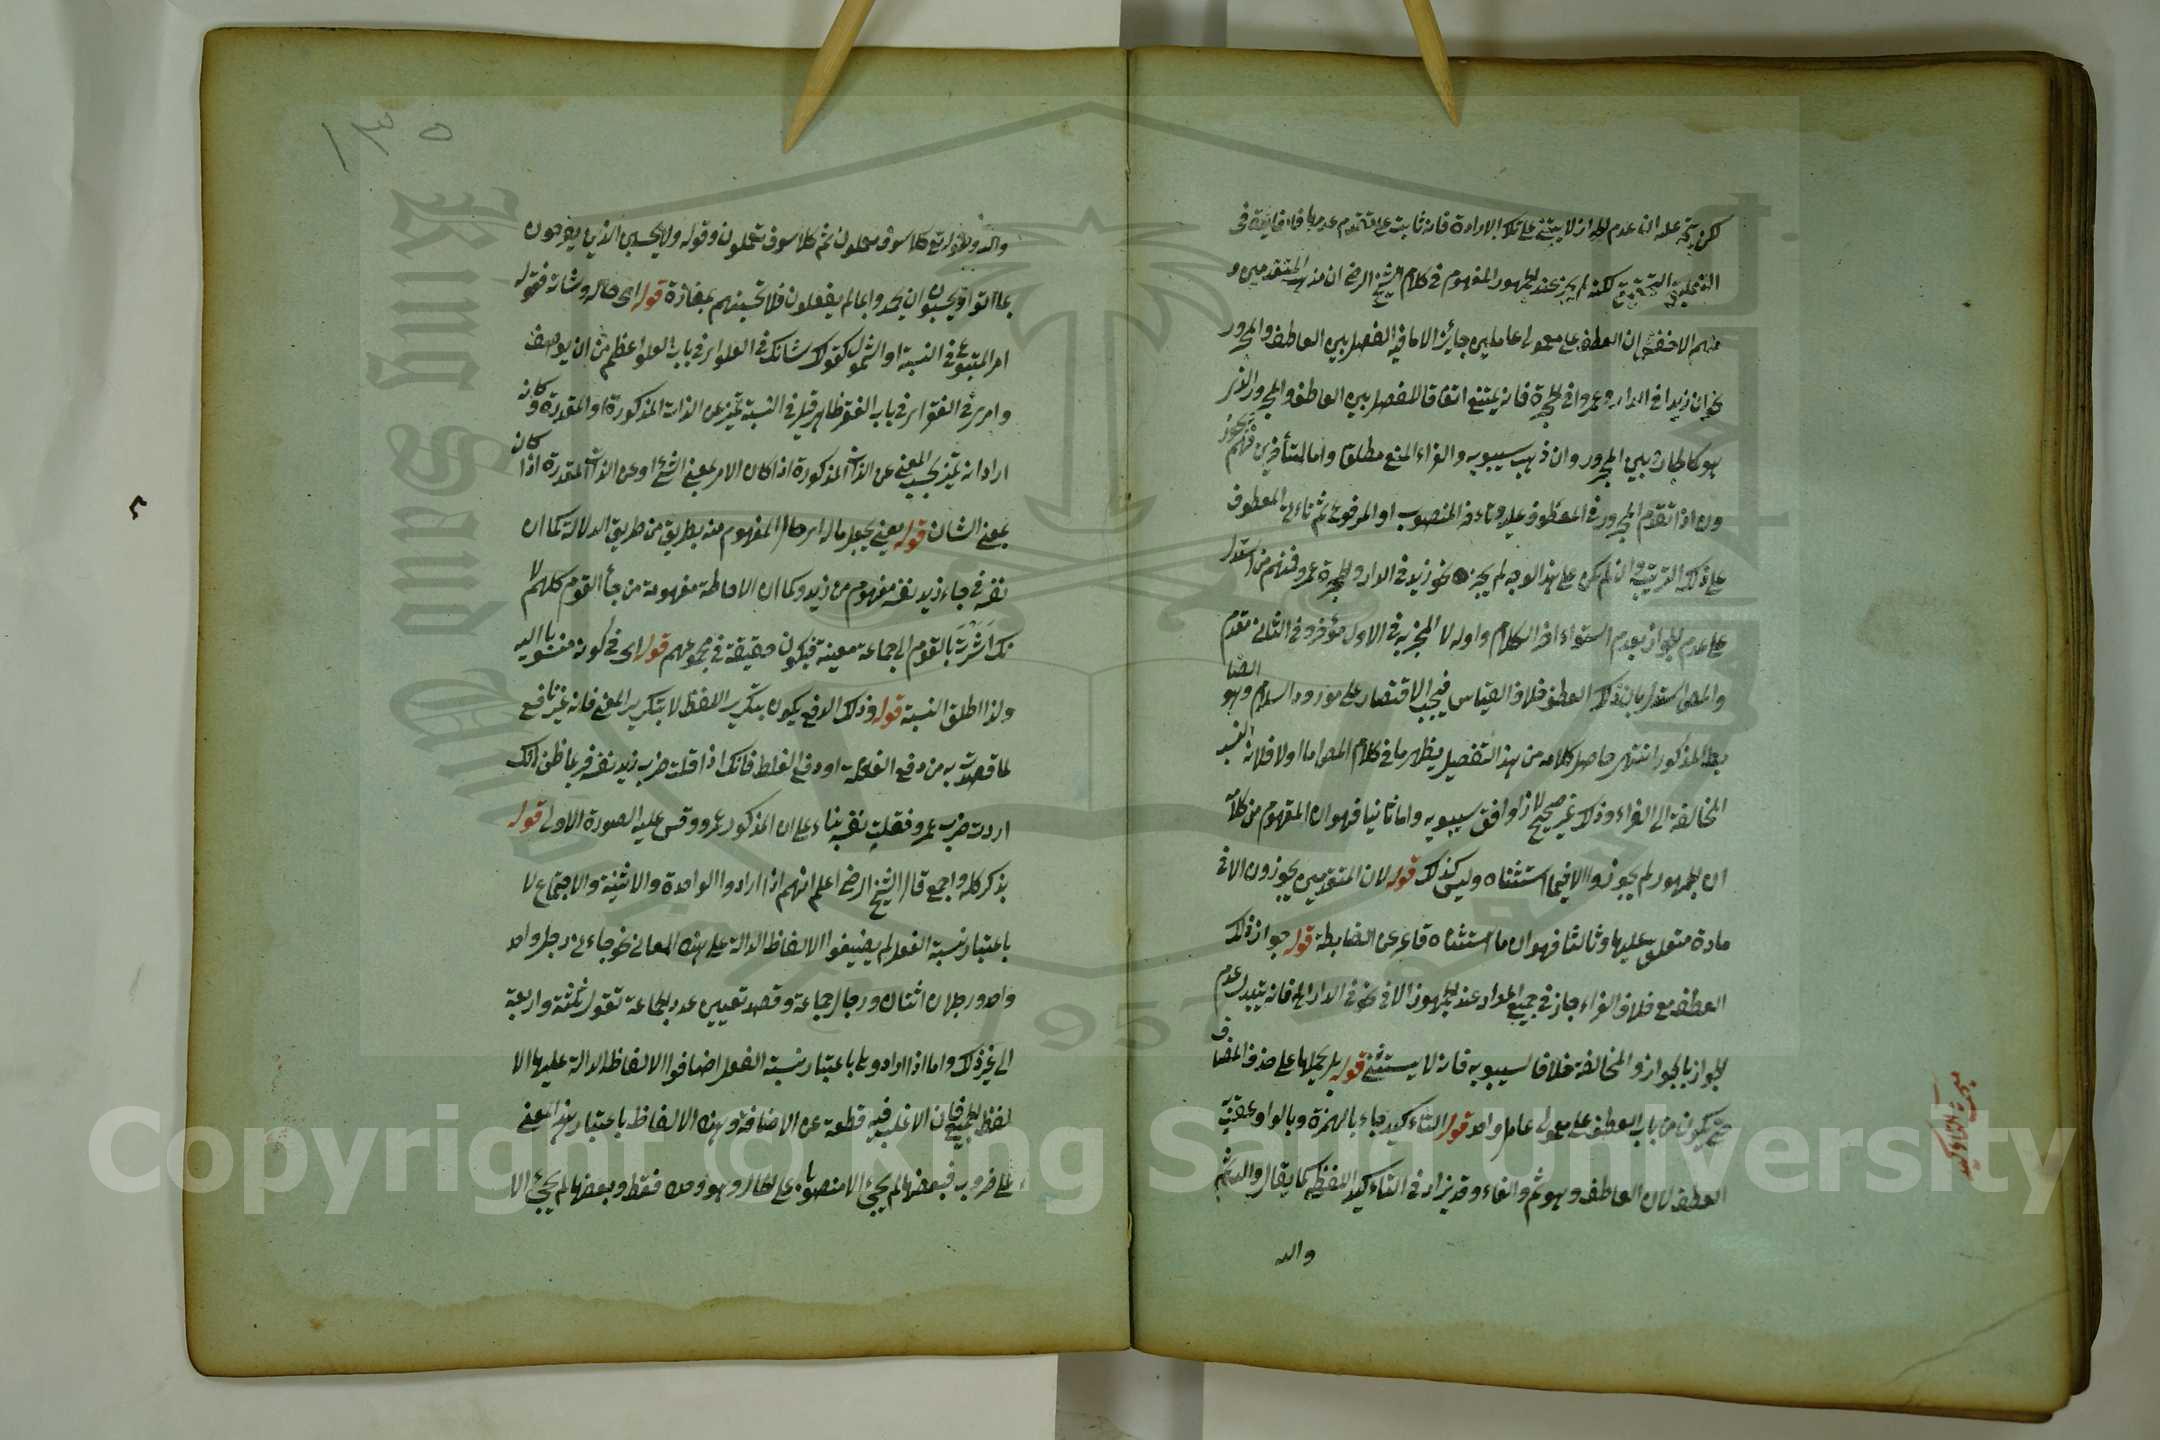 لكن يتجه عليه ان عدم الجواز لا يبتنى على تلك الارادة فانه ثابت على تقدم عدمها
لكنه لم يجز عند الجمهور المفهوم فى كلام الشيخ الرضى ان مذهب المتقدمين و
منهم الاخفش ان العطف على معمولى عاملين جائز الا ما فيه الفصل بين العاطف والمجرور
نحو ان زيدا فى الدار وعمروا فى الحجرة فانه يمتنع اتفاقا للفصل بين العاطف والمجرور الذى
هو كالجار بين المجرور وان ذهب سيبويه والفراء المنع مطلقا واما المتأخرين فهم يجوز
ون اذا تقدم المجرور فى المعطوف عليه وتاخر المنصوب او المرفوع ثم تاتى بالمعطوف
على ذلك الترتيب وان لم يكن على هذا الوجه لم يجز نحو زيد فى الدار والحجرة عمرو فمنهم من استدل
على عدم الجواز بعدم استواء اخر الكلام واوله لان المخبر به فى الاول مؤخر وفى الثانى مقدم
والمص استدل بان ذلك العطف خلاف القياس فيجب الاقتصار على مورود السماع وهو الضا
بط المذكور انتهى حاصل كلامه من هذا التفصيل يظهر ما فى كلام المص اما اولا فلانه نسب
المخالفة الى الفراء وذلك غير صحيح لانه وافق سيبويه واما ثانيا فهو ان المفهوم من كلامه
ان الجمهور لم يجوزوا الا فيما استثناه وليس كذلك قوله لان المتقدمين يجوزون الا فى
مادة متعلق عليها وثالثا فهو ان ما استثناه قاعر عن الضابطة قوله جواز ذلك
العطف مع خلاف الفراء جاز فى جميع المواد عند الجمهور الا فى نحو فى الدار الخ فانه يتبدل عدم
الجواز بالجواز والمخالفة خلافا لسيبويه فانه لا يستثنى قوله بل يحملها على حذف المضاف
حتى يكون من باب العطف على معمولى عامل واحد قوله التأكيد جاء بالهمزة وبالواو
العطف لان العاطف وهو ثم والفاء وقد يزاد فى التأكيد اللفظى كما يقال والله ثم
والله
مبحث التأكيد
١٣٥
والله وقوله تع كلا سوف تعلمون ثم كلا سوف تعلمون وقوله ولا يحسبن الذين يفرحون
بما اتوا ويحبون ان يحمدوا بما لم يفعلون فلا تحسبنهم بمفازة قوله اى حاله وشانه فقوله
امر المتبوع فى النسبة او الشمول كقولك شانك فى العلو اى فى باب العلو اعظم من ان يوصف
وامرى فى الفقر اى فى باب الفقر ظاهر قيل فى النسبة تميز عن الذات المذكورة او المقدرة وكانه
اراد انه تميز بحسب المعنى عن الذات المذكورة اذا كان الامر بمعنى الشئ او عن الذات المقدرة اذا كان
بمعنى الشان قوله يعنى يجعل ما له اى حال المفهوم منه بطريق من طريق الدلالة كما ان
نفسه فى جاء زيد نفسه مفهوم من زيد وكما ان الاحاطة مفهومة من جأ القوم كلهم لا
نك اشرت بالقوم الى جماعة معينة فيكون حقيقة فى مجموعهم قوله اى فى كونه منسوبا اليه
ولذا اطلق النسبة قوله وذلك الدفع يكون بتكرير اللفظ لا بتكرير المعنى فانه غير نافع
لما قصدت به من دفع الغفلة او دفع الغلط فانك اذا قلت ضرب زيد نفسه فربما ظن انك
اردت ضرب عمرو فقلت نفسه بناء على ان المذكور عمرو وقس عليه الصورة الاولى قوله
بذكر كله واجمع قال الشيخ الرضى اعلم انهم اذا ارادوا الواحدة والاثنينة والاجتماع لا
باعتبار نسبة الفعل لم يضيفوا الالفاظ الدالة على هذه المعانى نحو جاءنى رجل واحد
واحد ورجلان اثنان ورجال جماعة وقصد تعيين عدد الجماعة تقول ثلثة واربعة
الى غير ذلك واما اذا ارادوها باعتبار نسبة الفعل اضافوا الالفاظ الدالة عليها الا
لفظ الجميع فان الاغلب فيه قطعه عن الاضافة وهذه الالفاظ باعتبار هذا المعنى
على ضروب فبعضها لم يجئ الا منصوبا على الحال وهو وحده فقط وبعضها لم يجئ الا